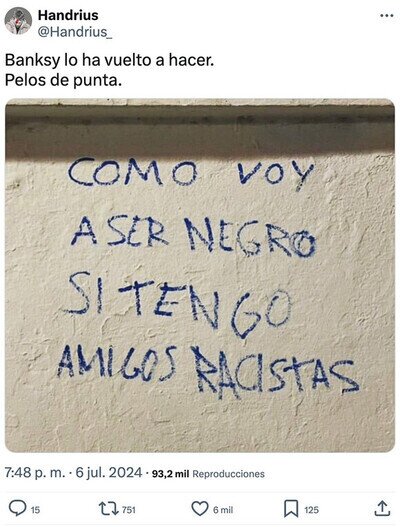 Handrius
@Handrius_
Banksy lo ha vuelto a hacer.
Pelos de punta.
COMO VOY
A SER NEGRO
SI TENGO
AMIGOS RACISTAS
7:48 p. m. · 6 jul. 2024 · 93,2 mil Reproducciones
15 751 6 mil 125